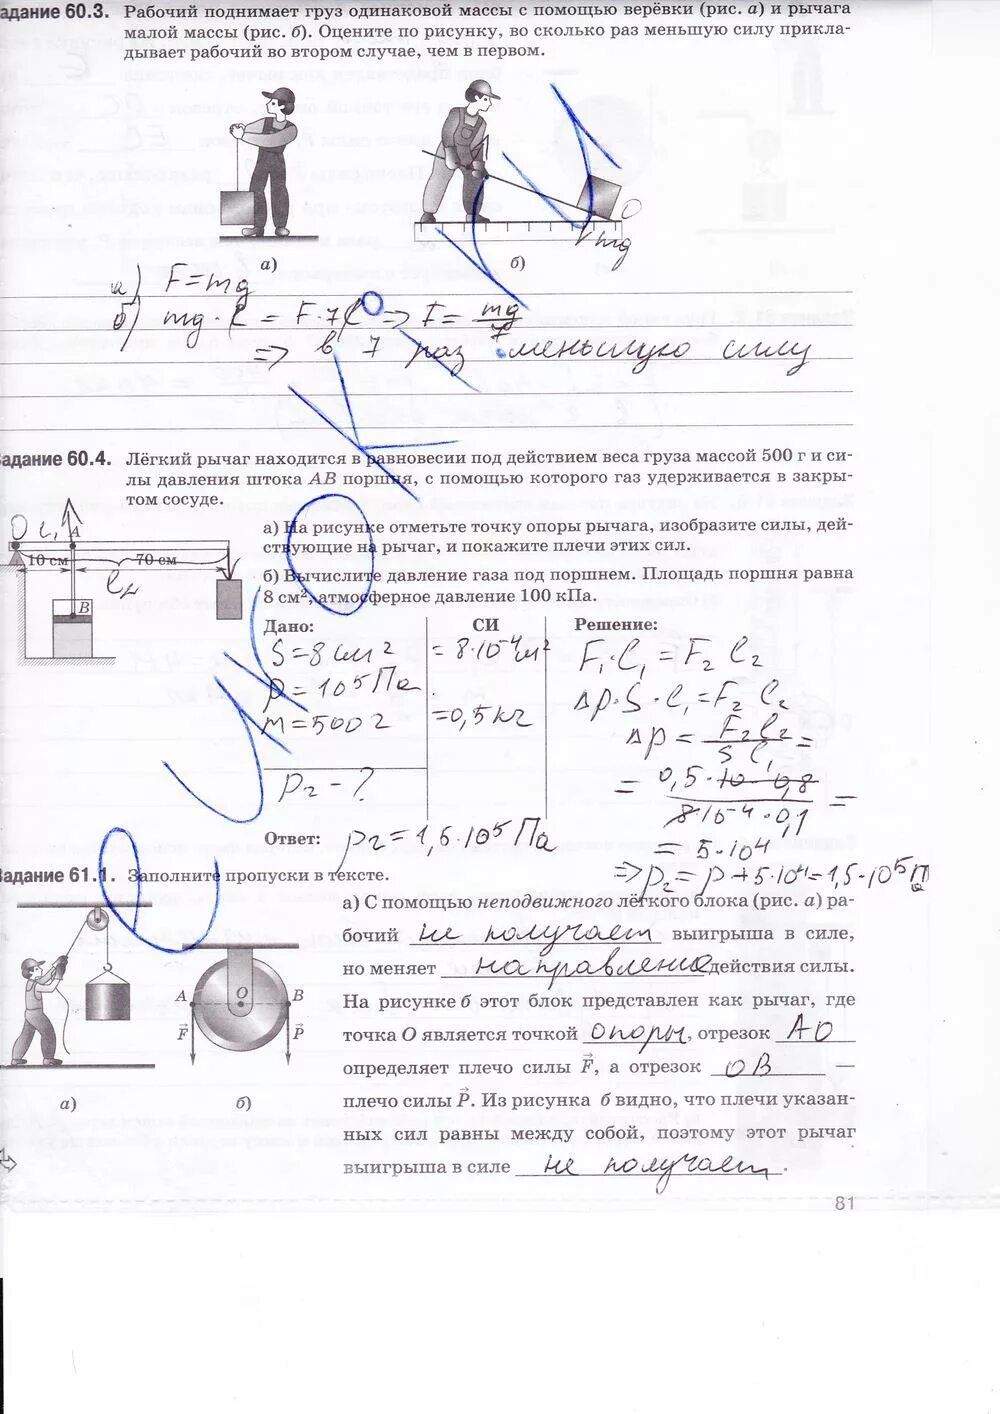 адание 60.3. Рабочий поднимает груз одинаковой массы с помощью верёвки (рис. а) и рычага
малой массы (рис. б). Оцените по рисунку, во сколько раз меньшую силу прикла-
дывает рабочий во втором случае, чем в первом.
O
mg
а) б)
а) F = mg
б) mg · l = F · 7l => F = mg/7
=> в 7 раз меньшую силу
адание 60.4. Лёгкий рычаг находится в равновесии под действием веса груза массой 500 г и си-
лы давления штока AB поршня, с помощью которого газ удерживается в закры-
том сосуде.
O l₁ A
10 см 70 см
l₂
B
а) На рисунке отметьте точку опоры рычага, изобразите силы, дей-
ствующие на рычаг, и покажите плечи этих сил.
б) Вычислите давление газа под поршнем. Площадь поршня равна
8 см², атмосферное давление 100 кПа.
Дано: СИ Решение:
S = 8 см² = 8·10⁻⁴ м² F₁·l₁ = F₂ l₂
p = 10⁵ Па Δp·S·l₁ = F₂ l₂
m = 500 г = 0,5 кг Δp = F₂ l₂ / S l₁ =
p₂ - ? = 0,5·10·0,8 / 8·10⁻⁴·0,1 =
Ответ: p₂ = 1,5·10⁵ Па = 5·10⁴
=> p₂ = p + 5·10⁴ = 1,5·10⁵ Па
адание 61.1. Заполните пропуски в тексте.
а) С помощью неподвижного лёгкого блока (рис. а) ра-
бочий не получает выигрыша в силе,
но меняет направление действия силы.
На рисунке б этот блок представлен как рычаг, где
точка O является точкой опоры, отрезок AO
определяет плечо силы F, а отрезок OB —
плечо силы P. Из рисунка б видно, что плечи указан-
ных сил равны между собой, поэтому этот рычаг
выигрыша в силе не получает.
A O B
F P
а) б)
81